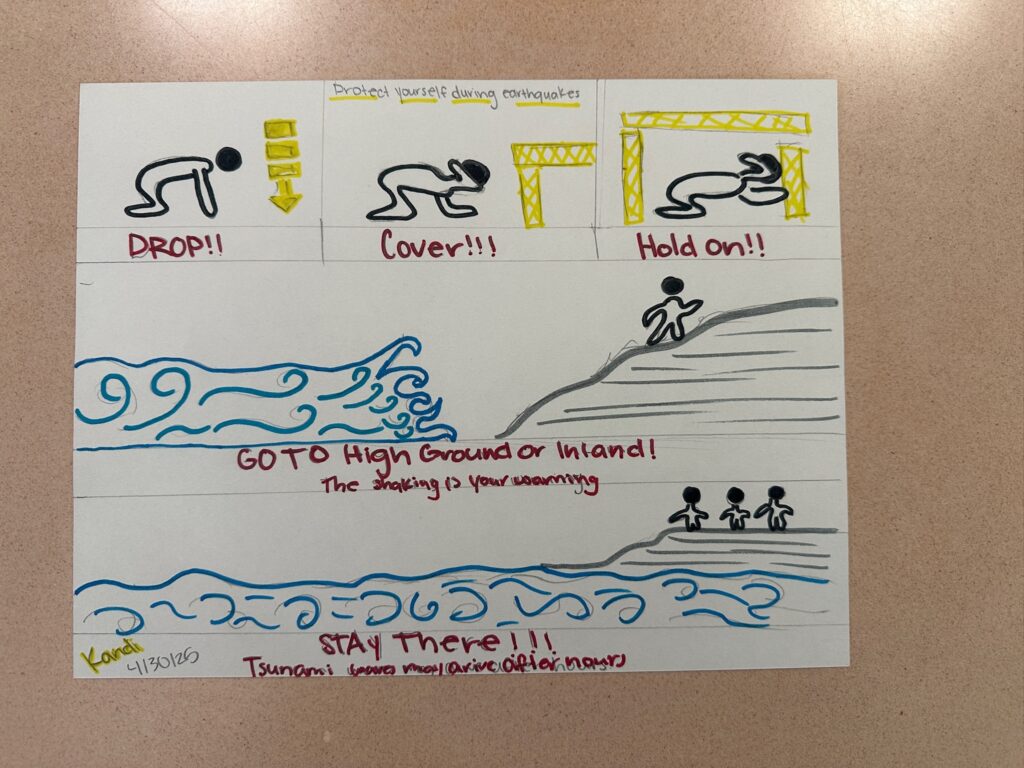 Protect yourself during earthquakes
DROP!! Cover!!! Hold on!!
GO TO High Ground or Inland!
The shaking is your warning
STAY There!!!
Tsunami waves may arive after hours
Kandi
4/30/25